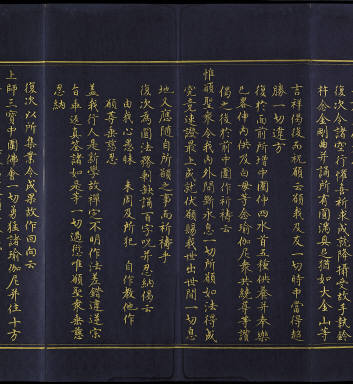 復次今諸空行權喜祈求成就降攝受故手執鈴
杵念金剛曲并誦所有圓滿真也猶如大金山等
吉祥偈復而祝願云願我及友一切時中當得超
勝一切違方
復於面前所增中圍件四水首五種供養并奉樂
已器件内供及白母等念瑜伽尼衆共繞尊等讚
偈之後於前中圍作祈禱云
惟願聖衆令我内外間斷永息一切所願如法得成
究竟速證最上成就伏願賜我世出世間一切息
地又應隨自所願之事而祈禱乎
復次為圓法務剰缺誦百字呪并思納偈云
由我心愚昧　未周及所犯　自作教他作
願尊垂慈忍
盖我行人是新學故禪定不明作法差錯違逆宗
旨乖返真答諸如是本一切過愆惟願聖衆垂慈
忍納
復次以所集業令成果故作回向云
上師三寶中圍佛會一切勇猛諸瑜伽尼并住十方